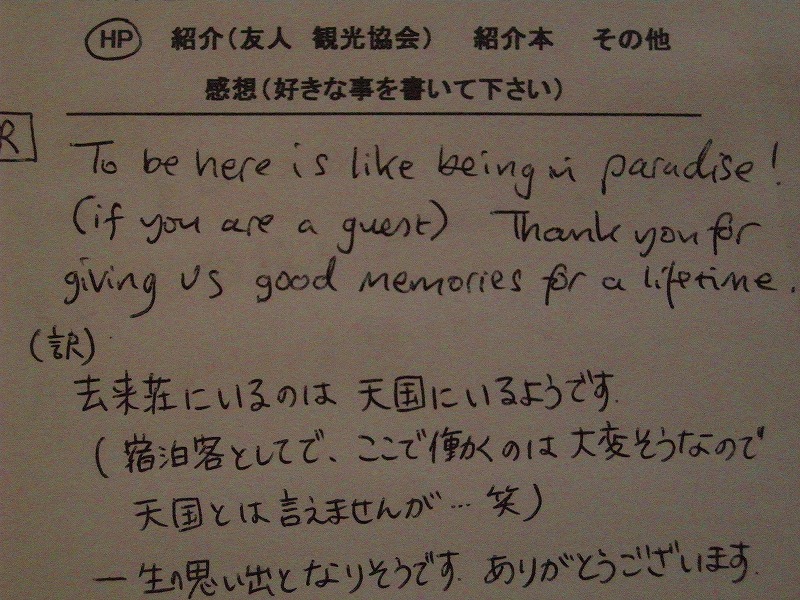 HP 紹介(友人 観光協会) 紹介本 その他
感想(好きな事を書いて下さい)
R
To be here is like being in paradise!
(if you are a guest) Thank you for
giving us good memories for a lifetime.
(訳)
去来荘にいるのは 天国にいるようです.
(宿泊客としてで、ここで働くのは 大変そうなので
天国とは言えませんが… 笑)
一生の思い出となりそうです. ありがとうございます.